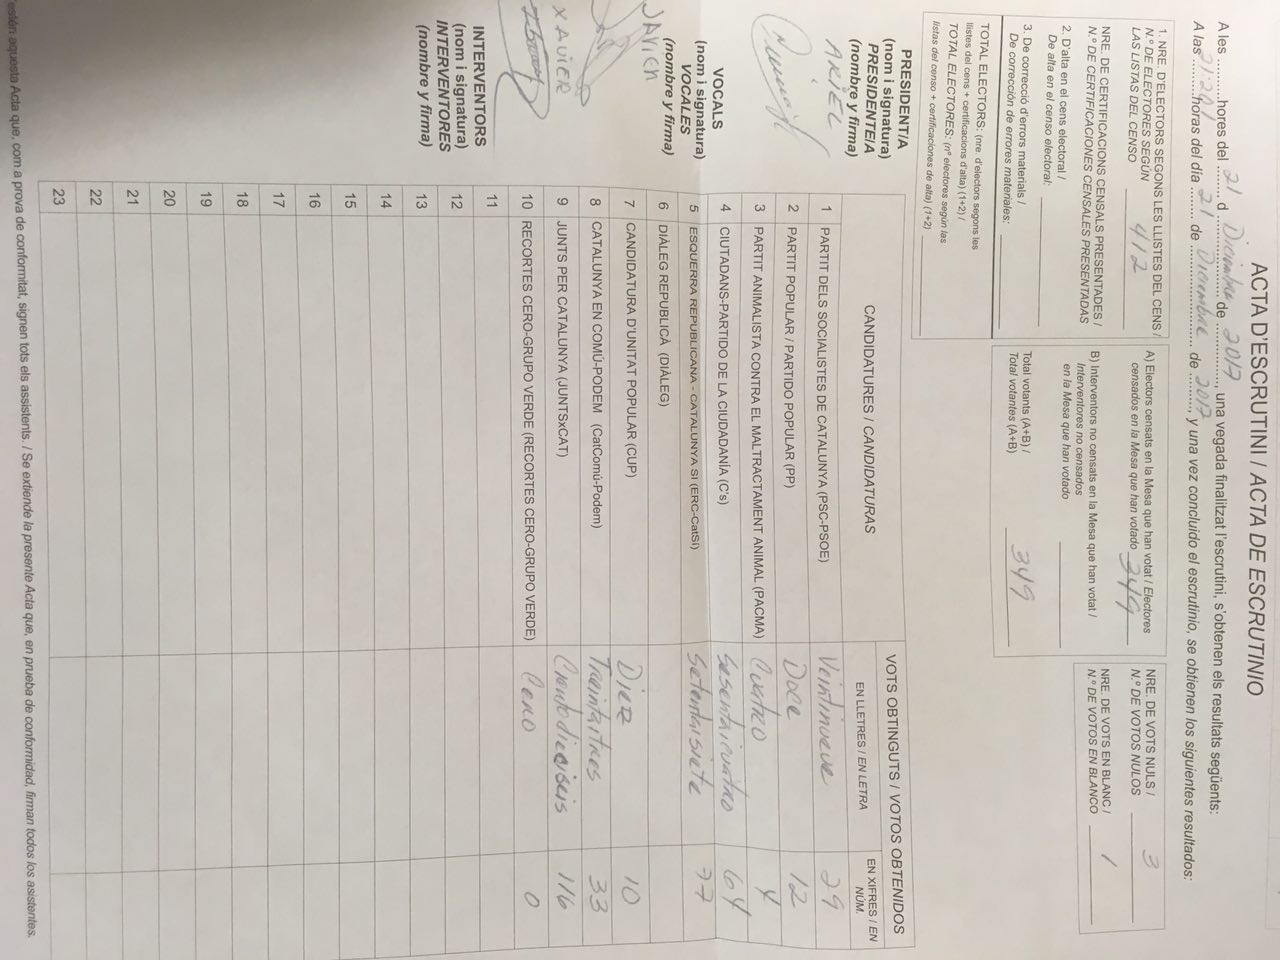 ACTA D'ESCRUTINI / ACTA DE ESCRUTINIO
A les ..........hores del 21 d Diciembre de 2017, una vegada finalitzat l'escrutini, s'obtenen els resultats següents:
A las 21:20 horas del día 21 de Diciembre de 2017, y una vez concluido el escrutinio, se obtienen los siguientes resultados:
1. NRE. D'ELECTORS SEGONS LES LLISTES DEL CENS /
N.º DE ELECTORES SEGÚN
LAS LISTAS DEL CENSO 412
NRE. DE CERTIFICACIONS CENSALS PRESENTADES /
N.º DE CERTIFICACIONES CENSALES PRESENTADAS
2. D'alta en el cens electoral /
De alta en el censo electoral:
3. De correcció d'errors materials /
De corrección de errores materiales:
TOTAL ELECTORS: (nre. d'electors segons les
llistes del cens + certificacions d'alta) (1+2) /
TOTAL ELECTORES: (nº electores según las
listas del censo + certificaciones de alta) (1+2)
A) Electors censats en la Mesa que han votat / Electores
censados en la Mesa que han votado 349
B) Interventors no censats en la Mesa que han votat /
Interventores no censados
en la Mesa que han votado
Total votants (A+B) /
Total votantes (A+B) 349
NRE. DE VOTS NULS /
N.º DE VOTOS NULOS 3
NRE. DE VOTS EN BLANC /
N.º DE VOTOS EN BLANCO 1
PRESIDENT/A
(nom i signatura)
PRESIDENTE/A
(nombre y firma)
ARIEL
VOCALS
(nom i signatura)
VOCALES
(nombre y firma)
JAVIER
XAVIER
INTERVENTORS
(nom i signatura)
INTERVENTORES
(nombre y firma)
CANDIDATURES / CANDIDATURAS
VOTS OBTINGUTS / VOTOS OBTENIDOS
EN LLETRES / EN LETRA
EN XIFRES / EN NÚM.
1 PARTIT DELS SOCIALISTES DE CATALUNYA (PSC-PSOE) Veintinueve 29
2 PARTIT POPULAR / PARTIDO POPULAR (PP) Doce 12
3 PARTIT ANIMALISTA CONTRA EL MALTRACTAMENT ANIMAL (PACMA) Cuatro 4
4 CIUTADANS-PARTIDO DE LA CIUDADANÍA (C's) Sesentaicuatro 64
5 ESQUERRA REPUBLICANA - CATALUNYA SÍ (ERC-CatSí) Setentaisiete 77
6 DIÀLEG REPUBLICÀ (DIÀLEG)
7 CANDIDATURA D'UNITAT POPULAR (CUP) Diez 10
8 CATALUNYA EN COMÚ-PODEM (CatComú-Podem) Treintaitres 33
9 JUNTS PER CATALUNYA (JUNTSxCAT) Cientodieciseis 116
10 RECORTES CERO-GRUPO VERDE (RECORTES CERO-GRUPO VERDE) Cero 0
11
12
13
14
15
16
17
18
19
20
21
22
23
estén aquesta Acta que, com a prova de conformitat, signen tots els assistents. / Se extiende la presente Acta que, en prueba de conformidad, firman todos los asistentes.